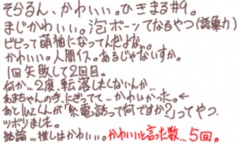 そらるん、かわいい。ひきまる#9。
まじかわいい。泡ボーンてなるやつ(語彙力)
ビビって萌袖になってんだけど。
かわいい。人間イス。あるじゃないすか。
1回失敗して2回目。
何か…2度、転落しまくないんか…
あまちゃんの手、にぎってて…かわいかったぁ。←
あと「〜くんが『終電誘って何ですか?』ってやつ。
ツボりました。
結論…推しはかわいい。かわいいと言った数…5回。